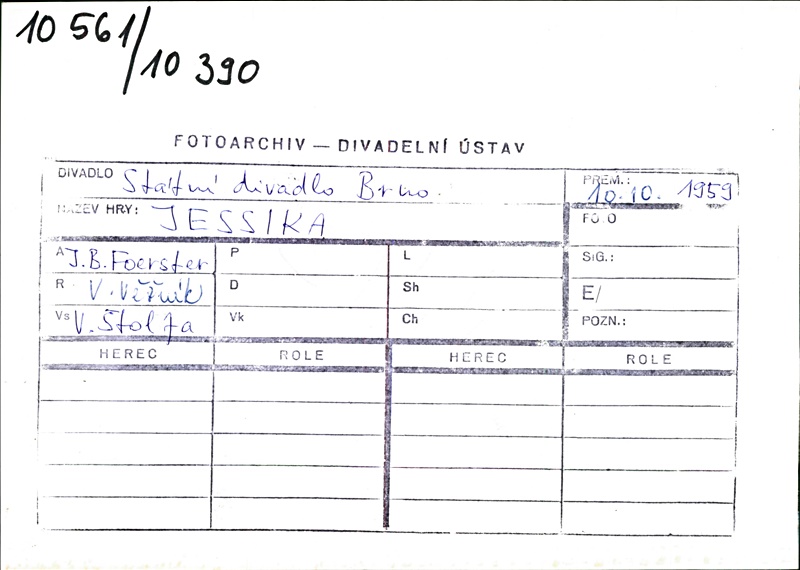 10 561/
10 390
FOTOARCHIV — DIVADELNÍ ÚSTAV
DIVADLO Státní divadlo Brno. PREM.: 10.10. 1959
NÁZEV HRY: JESSIKA FOTO
A J.B. Foerster P L SIG.:
R V. Věžník D Sh E/
Vs V. Štolfa Vk Ch POZN.:
HEREC ROLE HEREC ROLE